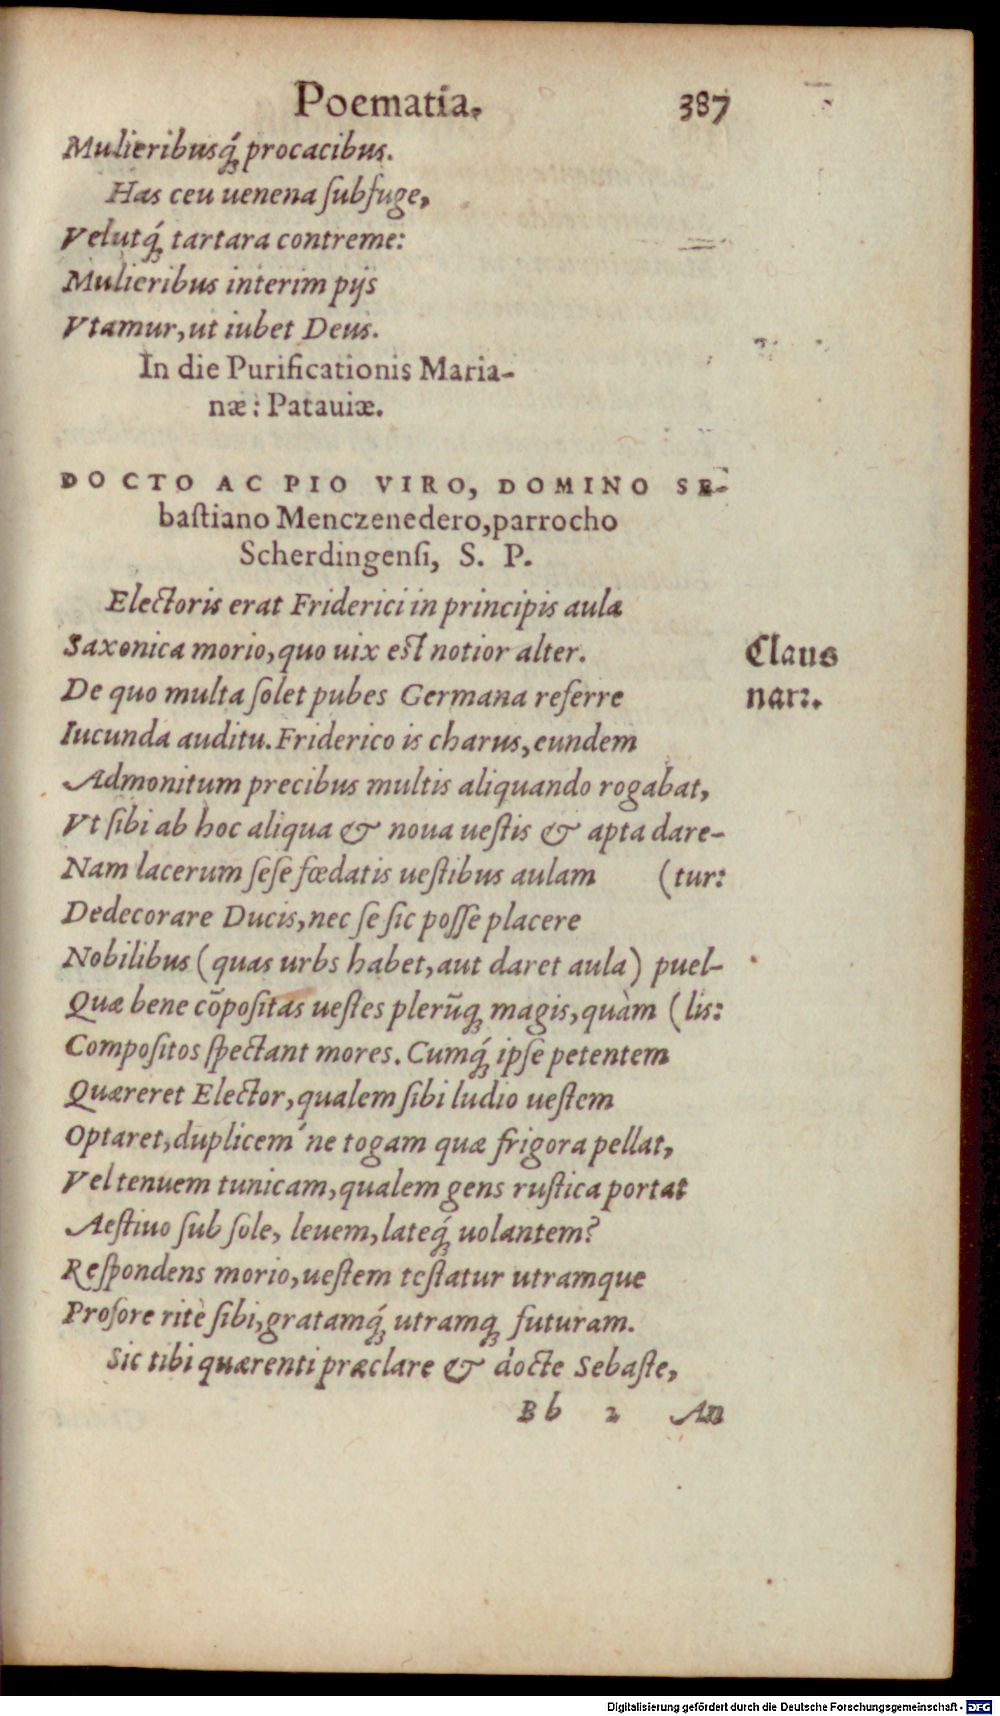 Poematia. 387
Mulieribusq́; procacibus.
Has ceu uenena ſubfuge,
Velutq́; tartara contreme:
Mulieribus interim pijs
Vtamur, ut iubet Deus.
In die Purificationis Maria-
næ: Patauiæ.
DOCTO AC PIO VIRO, DOMINO SE-
baſtiano Menczenedero, parrocho
Scherdingenſi, S. P.
Electoris erat Friderici in principis aula
Saxonica morio, quo uix eſt notior alter.
Claus
De quo multa ſolet pubes Germana referre
narr.
Iucunda auditu. Friderico is charus, eundem
Admonitum precibus multis aliquando rogabat,
Vt ſibi ab hoc aliqua & noua ueſtis & apta dare-
Nam lacerum ſeſe fœdatis ueſtibus aulam (tur:
Dedecorare Ducis, nec ſe ſic poſſe placere
Nobilibus (quas urbs habet, aut daret aula) puel-
Quæ bene cōpoſitas ueſtes plerūq; magis, quàm (lis:
Compoſitos ſpectant mores. Cumq́; ipſe petentem
Quæreret Elector, qualem ſibi ludio ueſtem
Optaret, duplicem ́ne togam quæ frigora pellat,
Vel tenuem tunicam, qualem gens ruſtica portat
Aeſtiuo ſub ſole, leuem, lateq́; uolantem?
Reſpondens morio, ueſtem teſtatur utramque
Profore ritè ſibi, gratamq́; utramq; futuram.
Sic tibi quærenti præclare & docte Sebaſte,
Bb 2 An
Digitalisierung gefördert durch die Deutsche Forschungsgemeinschaft - DFG